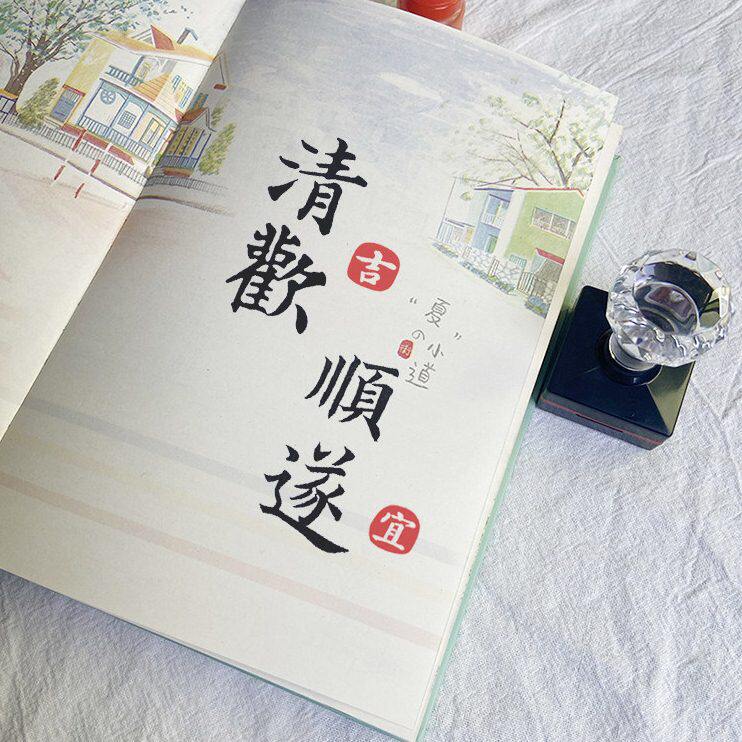 清歡
吉
順遂
宜
“夏”の
小道